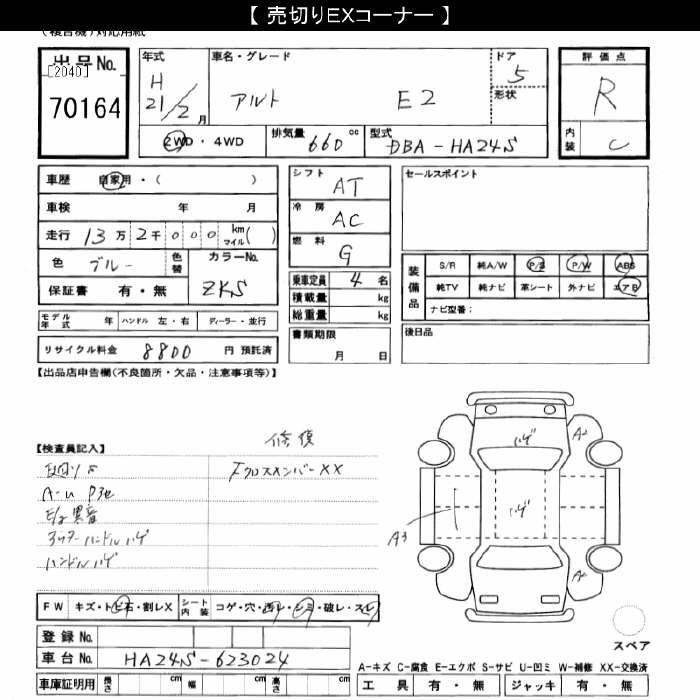 【 売切りEXコーナー 】
(複合機)対応用紙
出品No.
[2040]
70164
年式
H
21/2 月
車名・グレード
アルト E2
ドア
5
形状
評価点
R
内装
C
2WD ・ 4WD
排気量 660 cc
型式 DBA-HA24S
車歴 自家用・( )
車検 年 月
走行 13万 2千 0 0 0 km マイル( )
色 ブルー 色替
カラーNo.
ZKS
保証書 有・無
シフト
AT
冷房
AC
燃料
G
乗車定員 4 名
積載量 kg
総重量 kg
書類期限
月 日
セールスポイント
装備品
S/R 純A/W P/S P/W ABS
純TV 純ナビ 革シート 外ナビ エアB
ナビ型番:
後日品
モデル年式 年 ハンドル 左・右 ディーラー・並行
リサイクル料金 8800 円 預託済
【出品店申告欄(不良箇所・欠品・注意事項等)】
【検査員記入】
修復
Fクロスメンバー XX
アウターハンドル ハゲ
ハンドル ハゲ
ハゲ
ハゲ
A2
A3
A2
FW キズ・トビ石・割レX シート内装 コゲ・穴・汚レ・シミ・破レ・スレ
登録No.
車台No. HA24S-623024
車庫証明用 長さ cm 幅 cm 高さ cm
スペア
A-キズ C-腐食 E-エクボ S-サビ U-凹ミ W-補修 XX-交換済
工具 有・無 ジャッキ 有・無